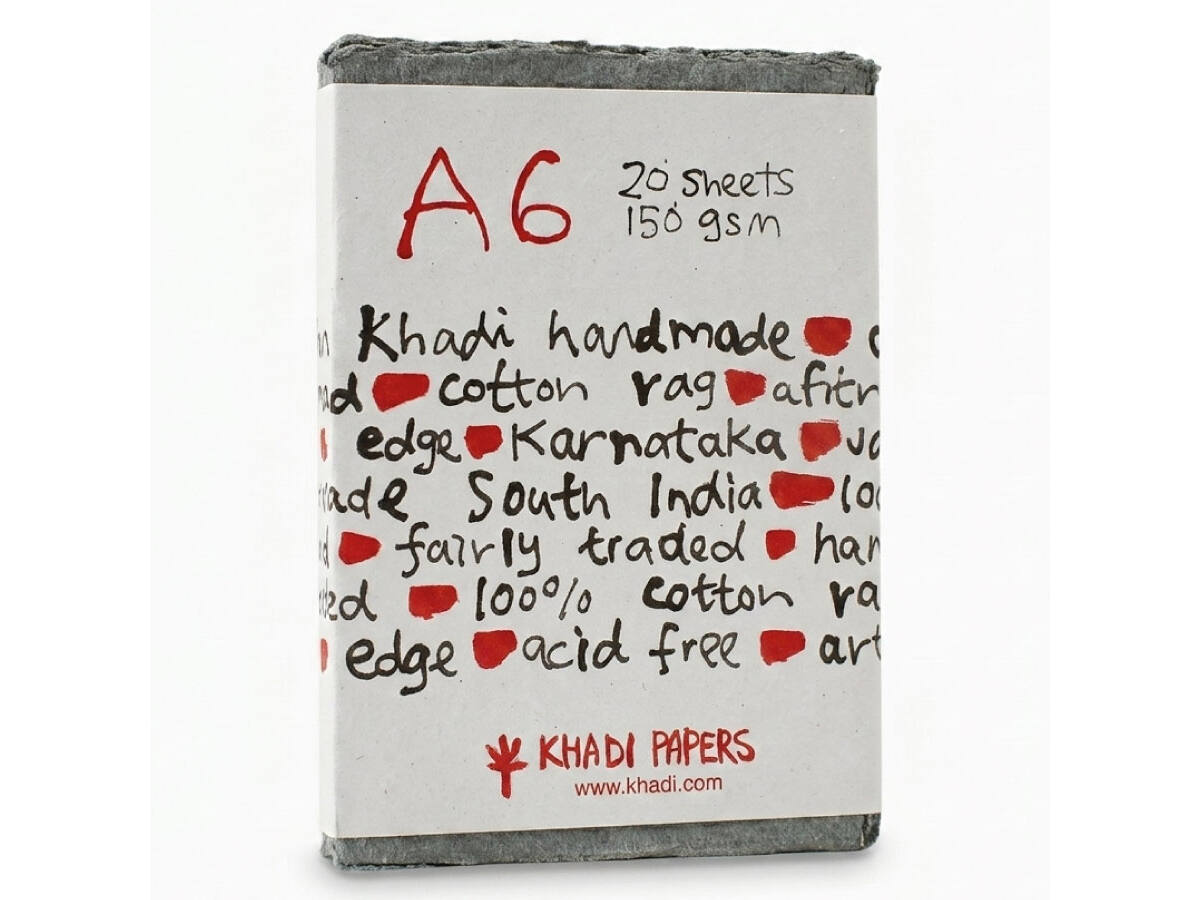 A6
20 sheets
150 gsm
Khadi handmade
cotton rag afitr
edge Karnataka
South India
fairly traded
100% cotton
edge acid free art
KHADI PAPERS
www.khadi.com